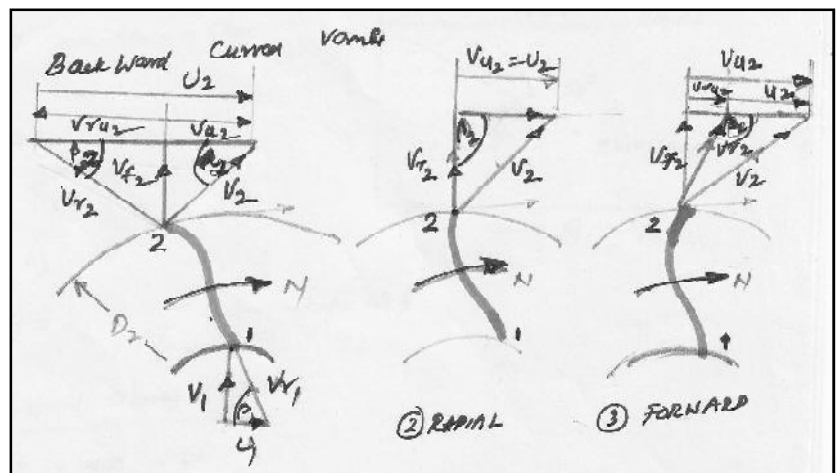 Back Ward Curved Vanes
U2
Vru2 Vu2
β2
Vr2 Vf2 V2
2
N
D2
1
V1 Vr1
β1
U1
Vu2 = U2
β2
Vr2 V2
2
N
1
② RADIAL
Vu2
Vru2 U2
β2
Vf2 Vr2 V2
2
N
1
③ FORWARD